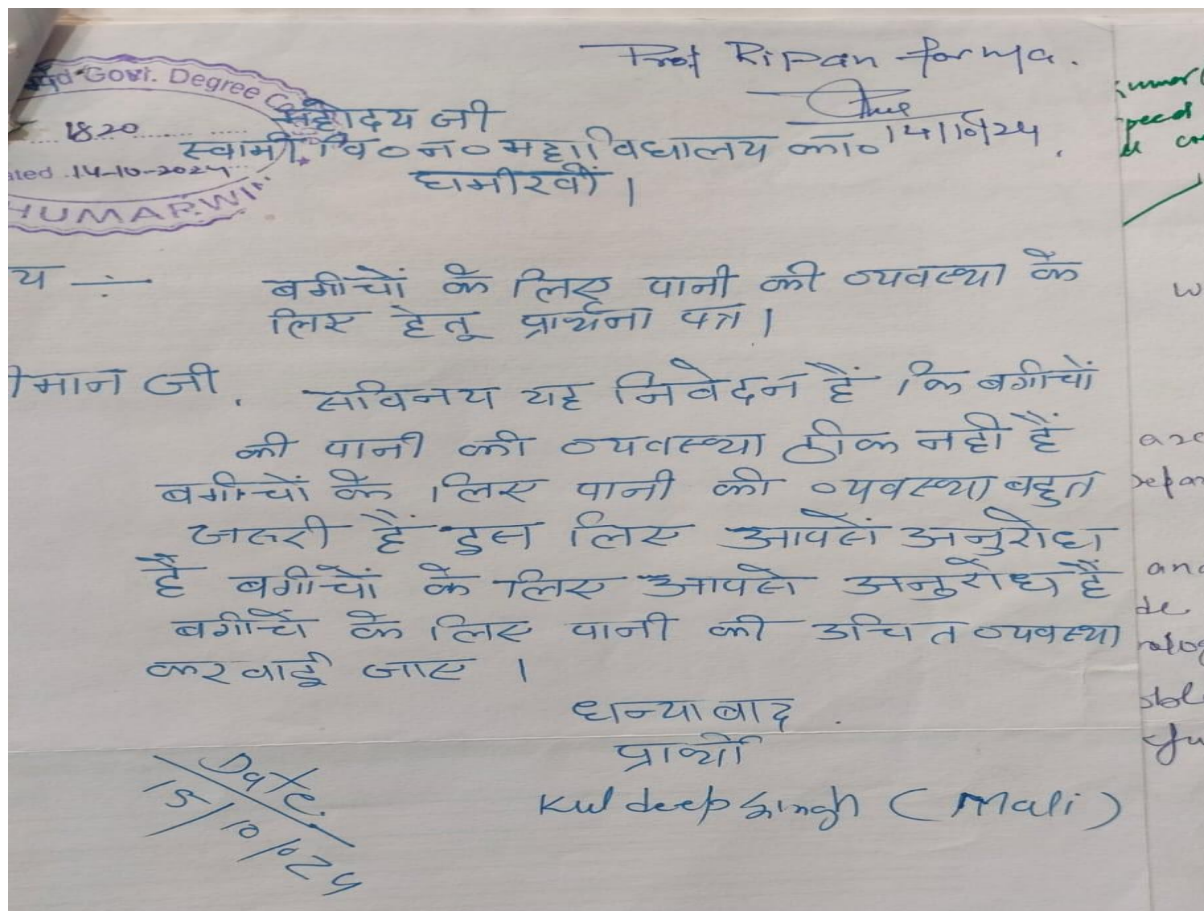 Prof Ripan
14/10/24
Govt. Degree
1820
ated 14-10-2024
HUMARWIN
महोदय जी
स्वामी वि०न० महाविधालय का०
घमीरवीं |
य ÷ बगीचों के लिए पानी की व्यवस्था के
लिए हेतू प्रार्थना पत्र |
मान जी, सविनय यह निवेदन हैं कि बगीचों
की पानी की व्यवस्था ठीक नही हैं
बगीचों के लिए पानी की व्यवस्था बहुत
जरुरी हैं इस लिए आपसें अनुरोध
हैं बगीचों के लिए आपसे अनुरोध हैं
बगीचें के लिए पानी की उचित व्यवस्था
करवाई जाए |
धन्याबाद
प्रार्थी
Kuldeep Singh (Mali)
Date
15/10/024